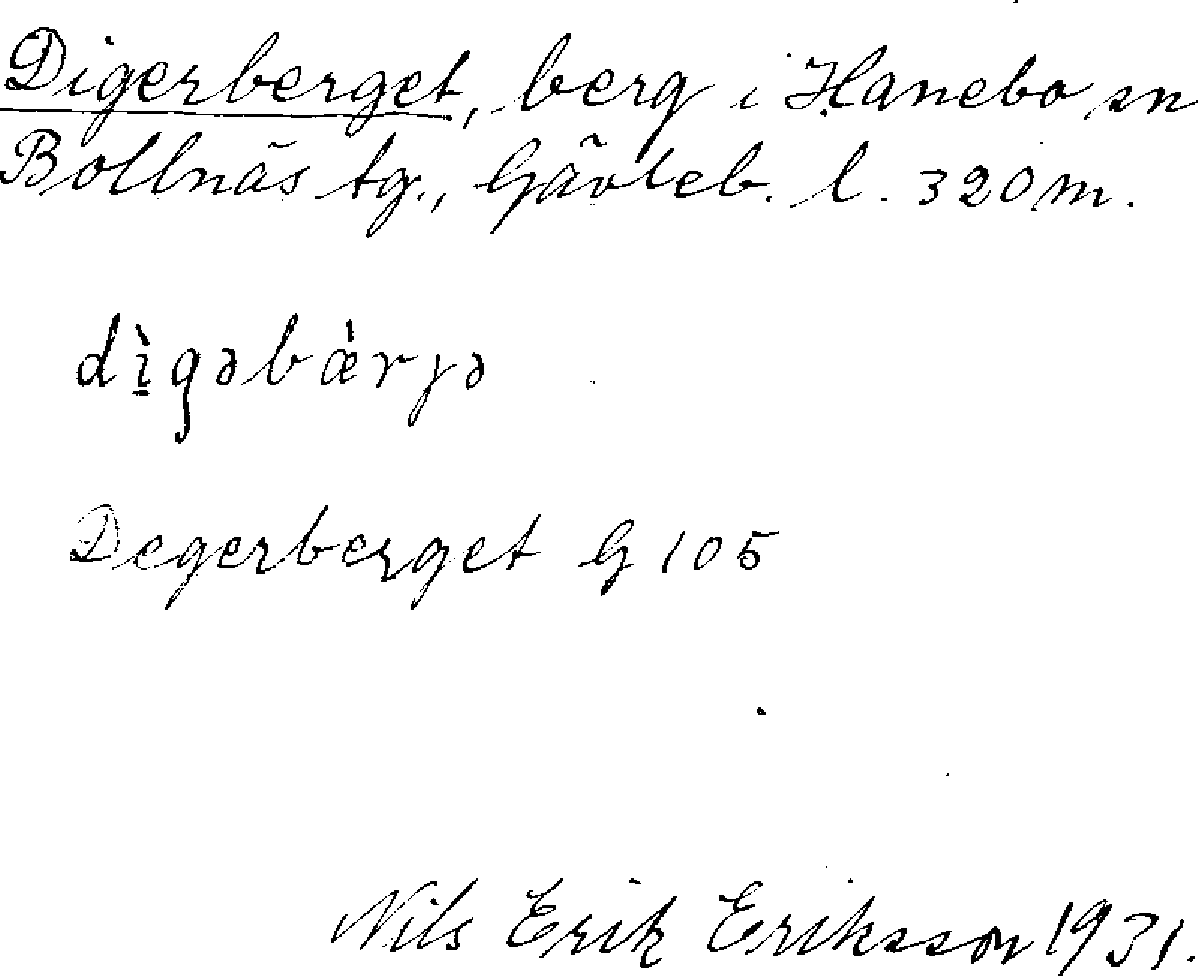 Digerberget, berg i Hanebo sn
Bollnäs tg., Gävleb. l. 320 m.
dìgəbæ̀rjə
Degerberget G 105
Nils Erik Eriksson 1931.